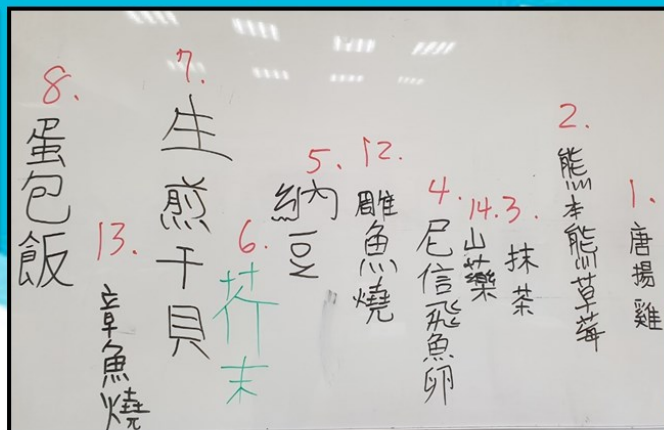 1. 唐揚雞
2. 熊本熊草莓
3. 抹茶
14. 山藥
4. 尼信飛魚卵
12. 雕魚燒
5. 納豆
6. 芥末
7. 生煎干貝
13. 章魚燒
8. 蛋包飯